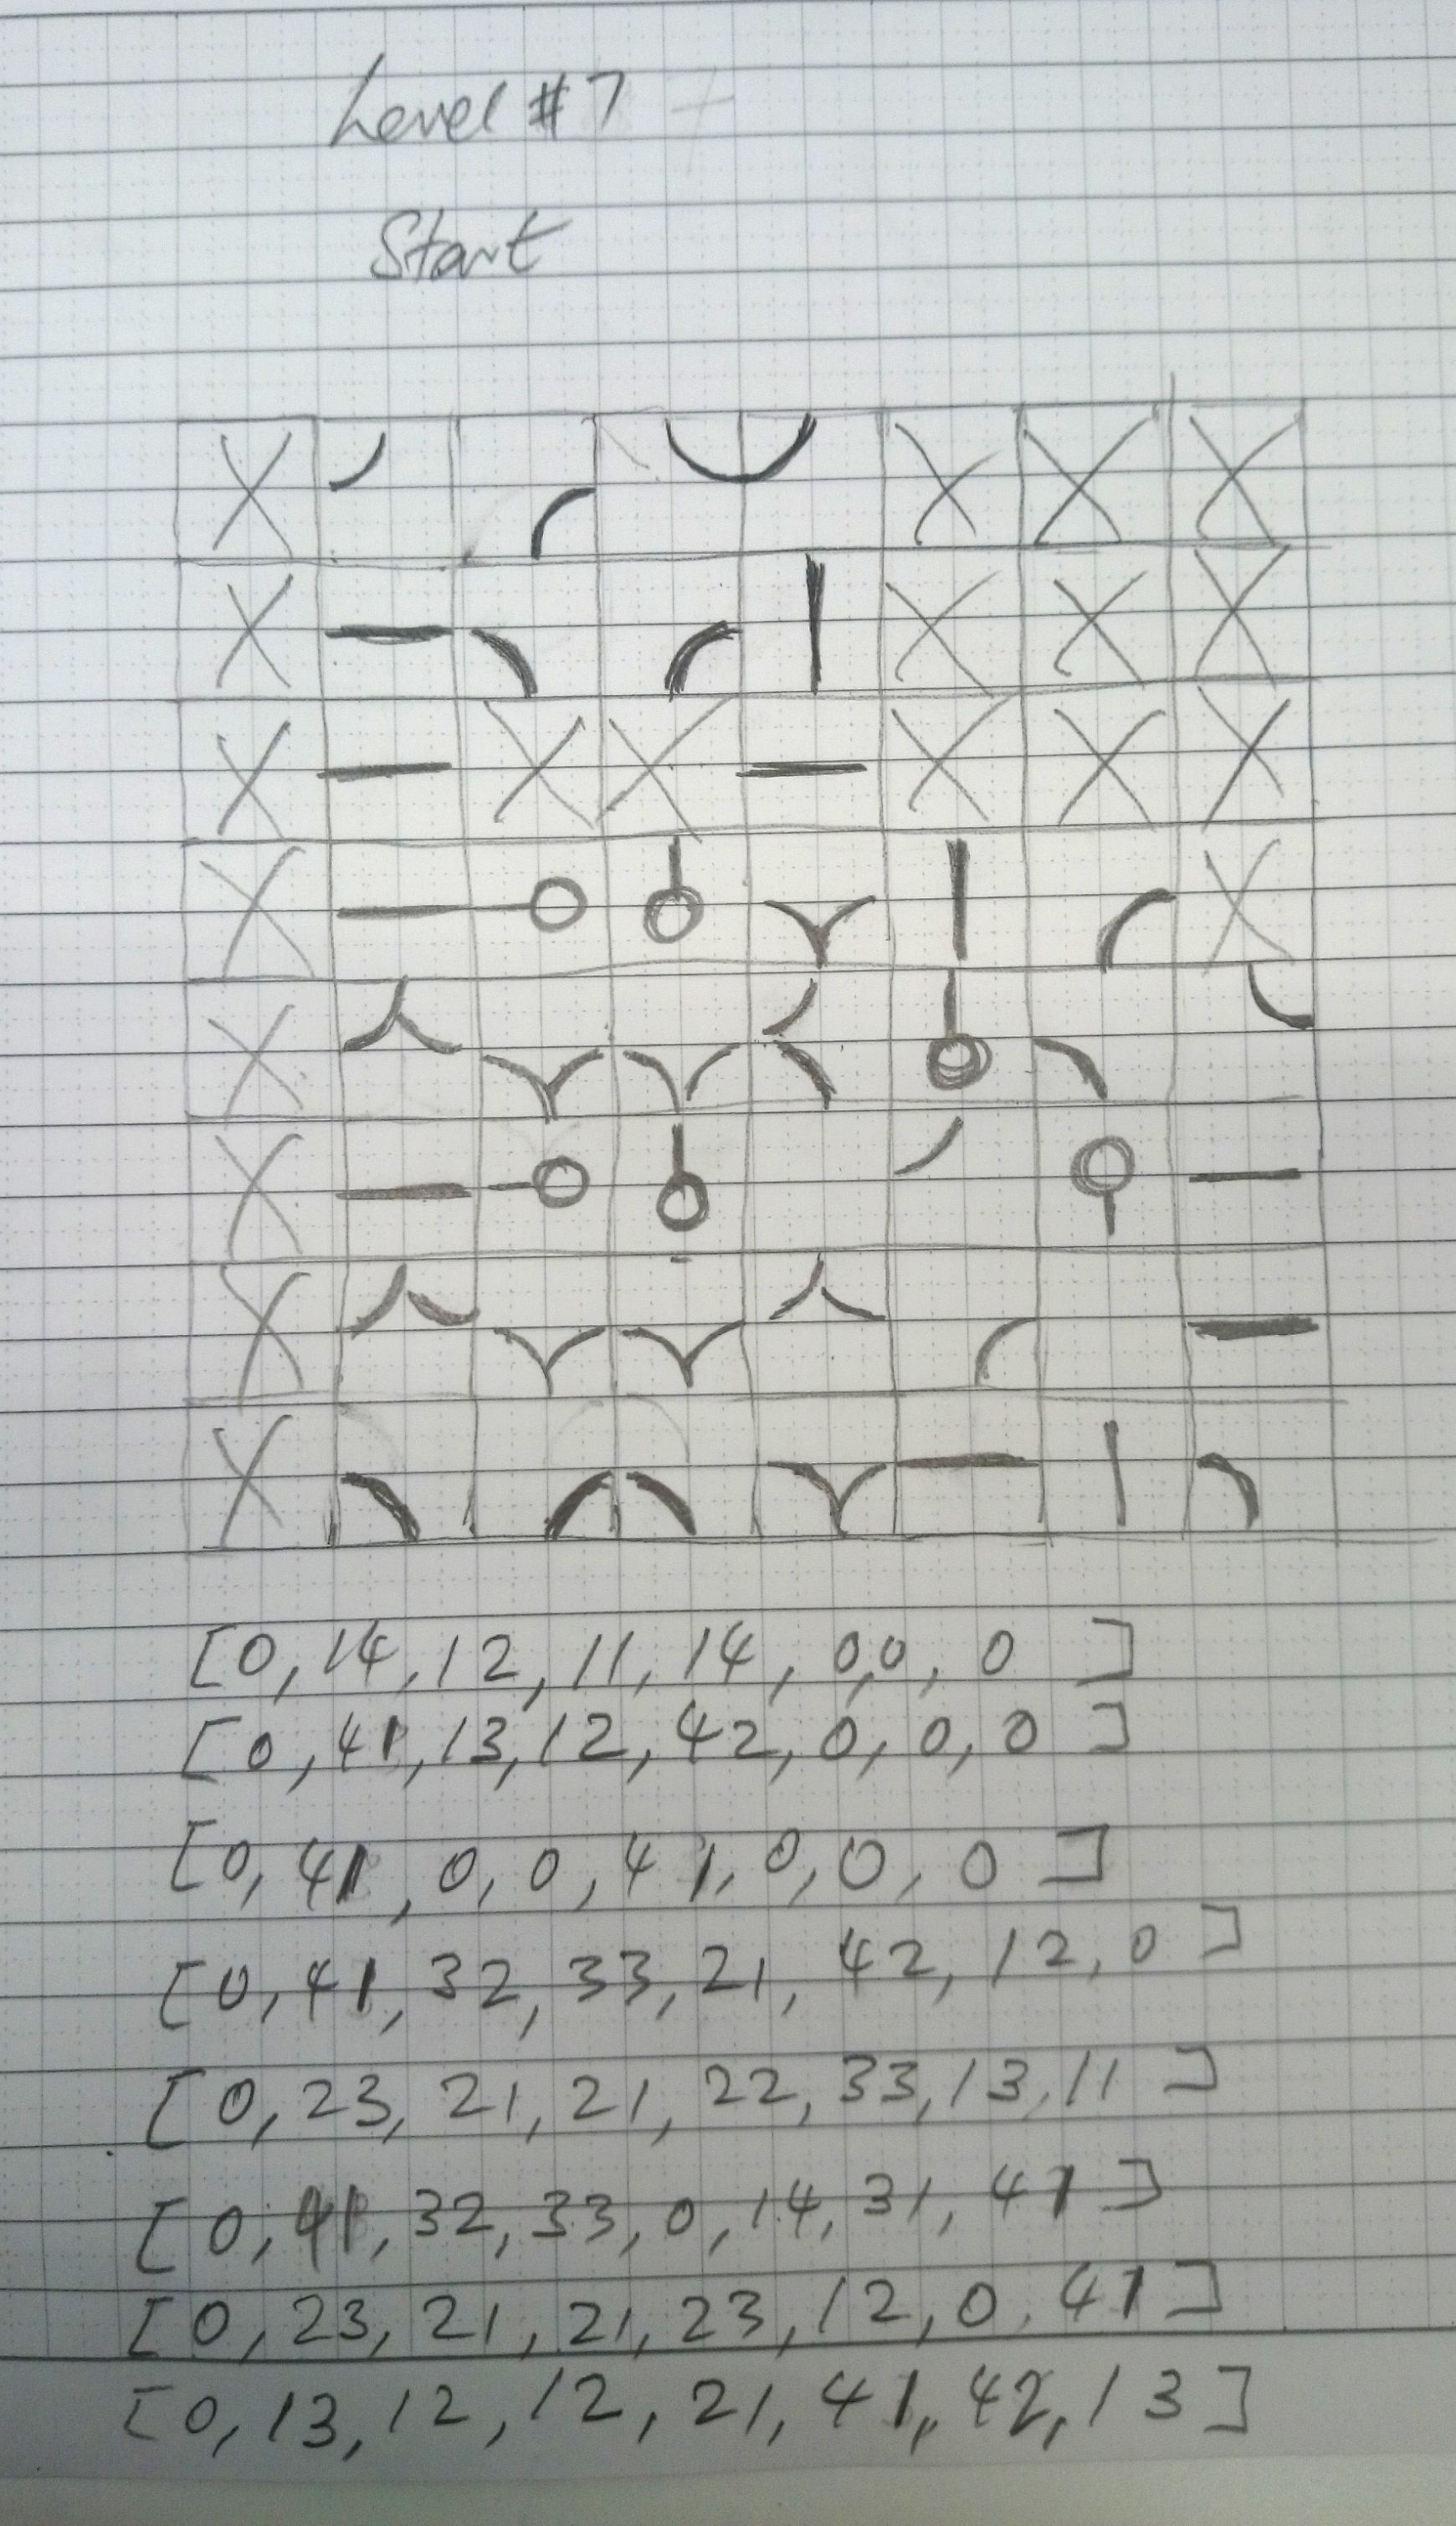 Level #7
Start
[0,14,12,11,14,0,0,0]
[0,41,13,12,42,0,0,0]
[0,41,0,0,41,0,0,0]
[0,41,32,33,21,42,12,0]
[0,23,21,21,22,33,13,11]
[0,41,32,33,0,14,31,41]
[0,23,21,21,23,12,0,41]
[0,13,12,12,21,41,42,13]